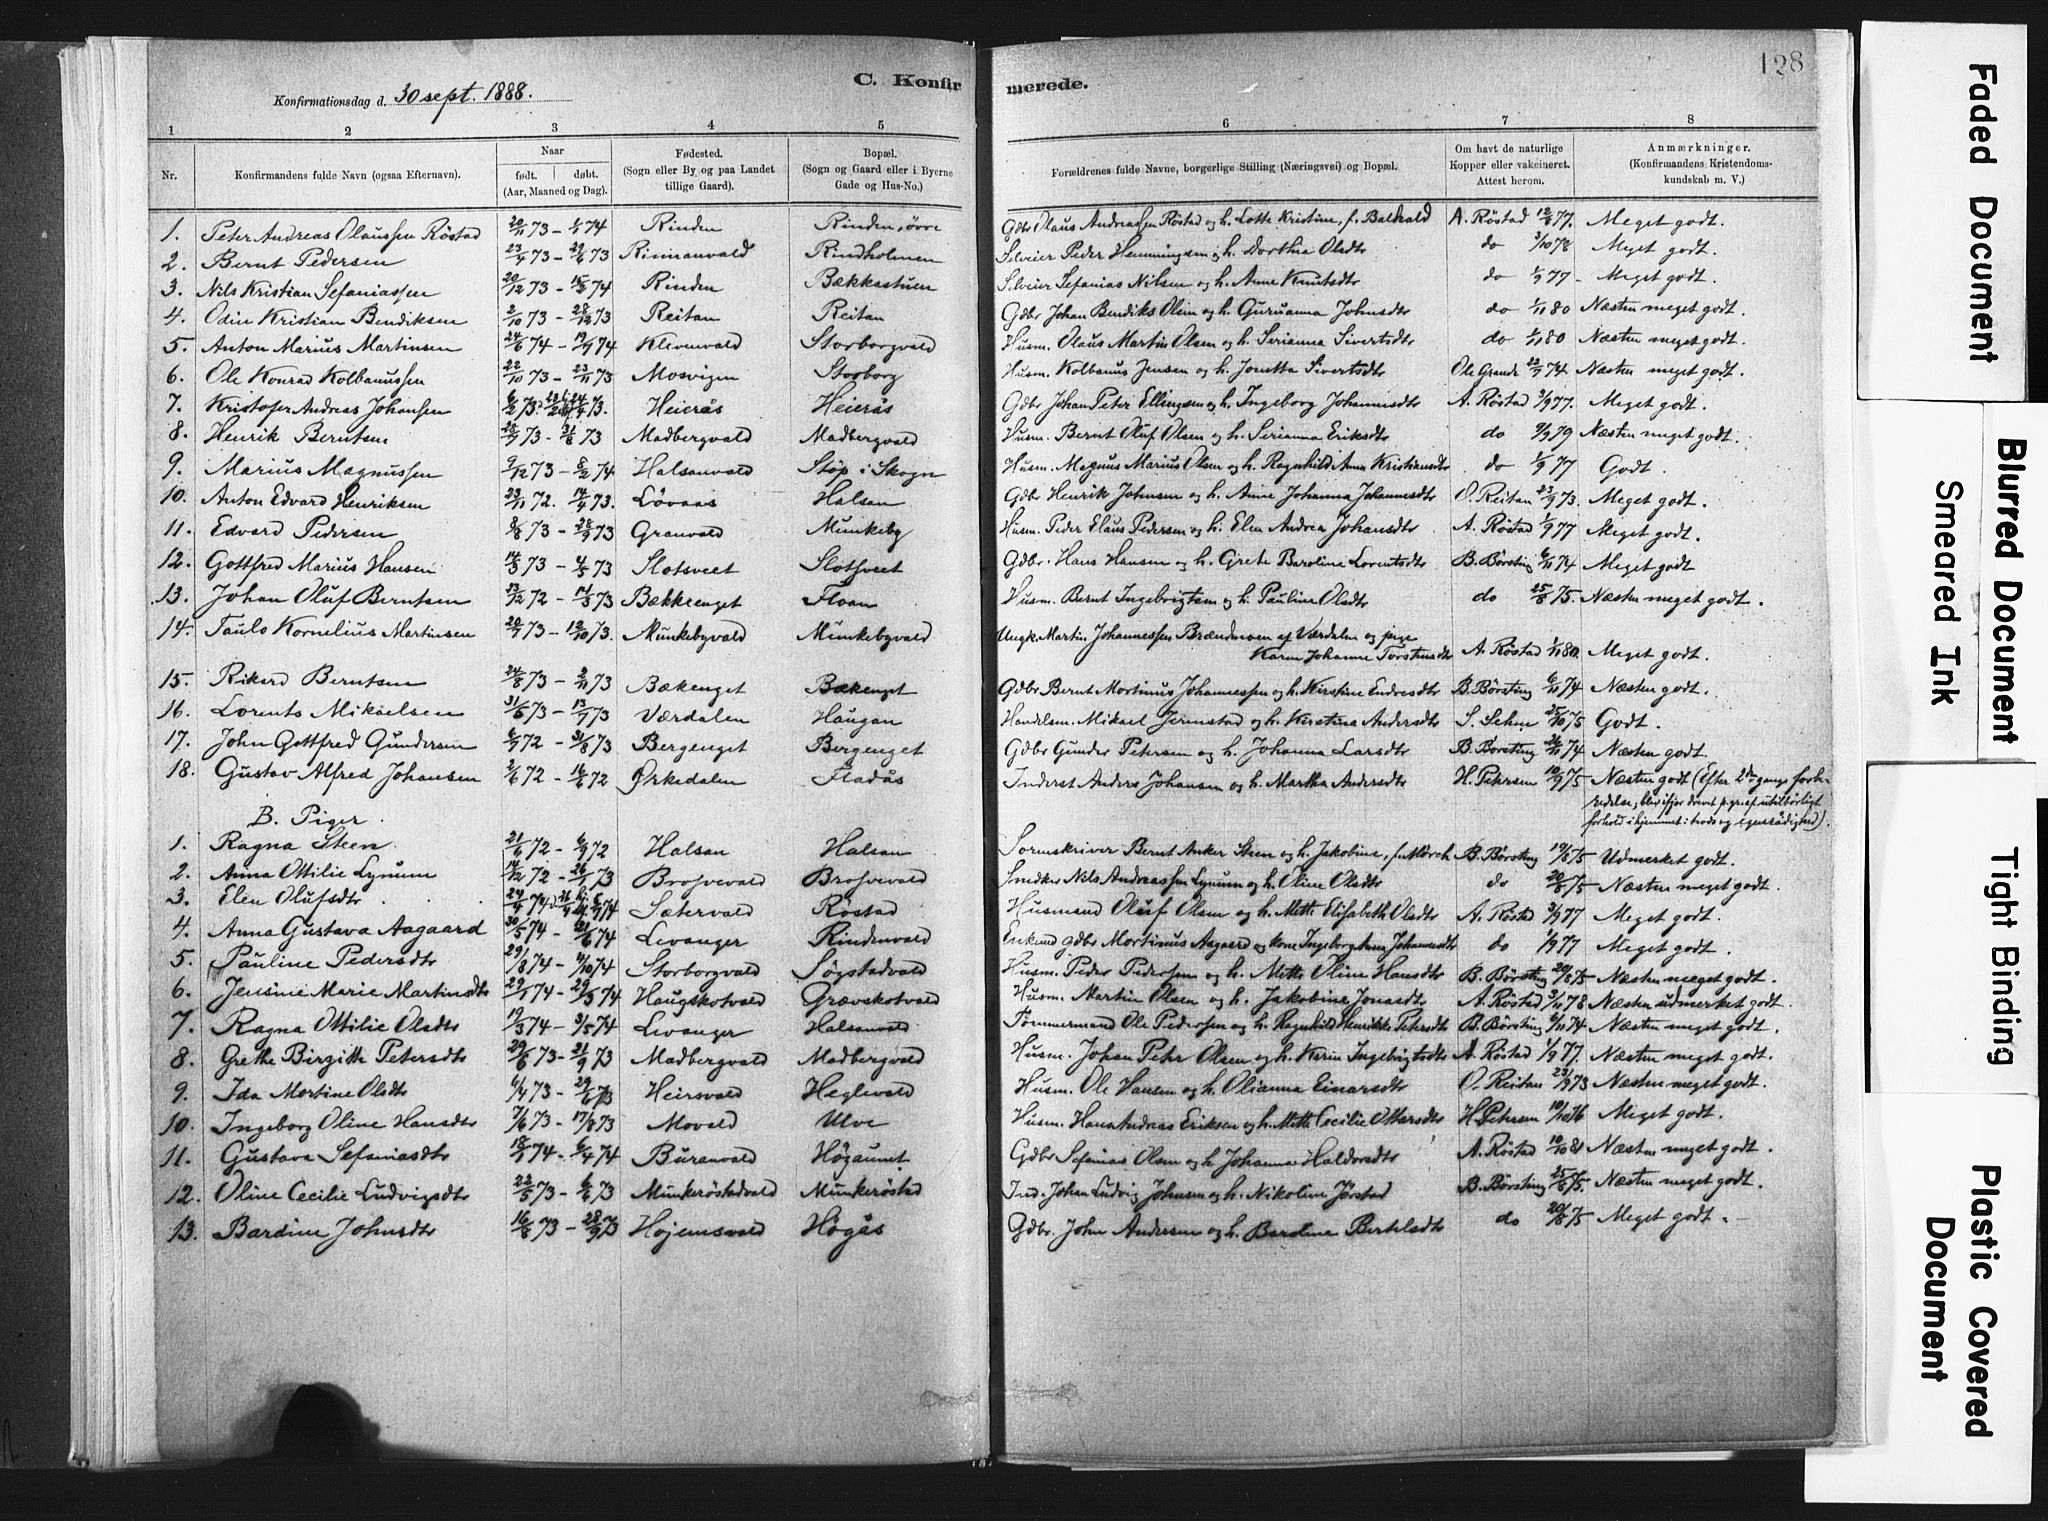 128
C. Konfirmerede.
Konfirmationsdag d. 30 sept. 1888.
1 2 3 4 5 6 7 8
Nr. Konfirmandens fulde Navn (ogsaa Efternavn). Naar født. døbt. (Aar, Maaned og Dag). Fødested. (Sogn eller By og paa Landet tillige Gaard). Bopæl. (Sogn og Gaard eller i Byerne Gade og Hus-No.) Forældrenes fulde Navne, borgerlige Stilling (Næringsvei) og Bopæl. Om havt de naturlige Kopper eller vakcineret. Attest herom. Anmærkninger. (Konfirmandens Kristendomskundskab m. V.)
1. Peter Andreas Olaussen Röstad 20/11 73 - 1/1 74 Rinden Rinden, övre Gdbr Olaus Andreassen Röstad og h. Lotte Kristine, f. Baldvald A. Röstad 12/8 77. Meget godt.
2. Bernt Pedersen 23/4 73 - 29/6 73 Rinnanvald Rindholmen Selveier Peder Hemmingsen og h. Dorthia Olsdtr do 3/10 78 Meget godt.
3. Nils Kristian Sefaniassen 20/12 73 - 15/2 74 Rinden Bækkastuen Selveier Sefanias Nilsen og h. Anne Knutsdtr do 1/9 77 - Meget godt.
4. Odin Kristian Bendiksen 2/10 73 - 28/12 73 Reitan Reitan Gdbr Johan Bendiks Olsen og h. Guruanna Johnsdtr do 1/11 80 Næsten meget godt.
5. Anton Marius Martinsen 24/6 74 - 19/9 74 Klevenvald Storborgvald Husm. Olaus Martin Olsen og h. Serianna Sivertsdtr do 1/11 80 Næsten meget godt.
6. Ole Konrad Kolbanussen 22/10 73 - 23/11 73 Mosvigen Storborg Husm. Kolbanus Jensen og h. Jonetta Sivertsdtr Ole Grande 22/7 74. Næsten meget godt.
7. Kristofer Andreas Johansen 6/2 73. Heieraas Heieraas Gdbr Johan Peter Ellingsen og h. Ingeborg Johannisdtr A. Röstad 3/9 77. Meget godt.
8. Henrik Berntsen 23/7 73 - 31/8 73 Madbergvald Madbergvald Husm. Bernt Oluf Olsen og h. Serianna Eriksdtr do 9/9 79 Næsten meget godt.
9. Marius Magnussen 9/12 73 - 8/2 74 Halsanvald Støp i Skogn Husm. Magnus Marius Olsen og h. Ragnhild Anna Kristiansdtr do 1/9 77 Godt.
10. Anton Edvard Henriksen 23/11 72. 14/4 73. Lövaas Halsan Gdbr Henrik Johnsen og h. Anne Johanna Johannesdtr O. Reitan 23/9 73. Meget godt.
11. Edvard Pedersen 8/8 73 - 28/9 73 Granvald Munkeby Husm. Peder Elaus Pedersen og h. Elen Andrea Johansdtr A. Röstad 1/9 77 Meget godt.
12. Gottfred Marius Hansen 14/3 73 - 4/5 73 Slotsveet Slotsveet Gdbr. Hans Hansen og h. Grete Baroline Lorentsdtr B. Börsting 6/11 74 Meget godt
13. Johan Oluf Berntsen 13/12 72 - 14/3 73 Bækkenget Floan Husm. Bernt Ingebrigtsen og h. Pauline Olsdtr do 25/8 75. Næsten meget godt.
14. Pauls Kornelius Martinsen 20/7 73 - 12/10 73. Munkebyvald Munkebyvald Ungk. Martin Johannessen Brændmoen af Værdalen og pige
Karen Johanne Torstensdtr A. Röstad 1/11 80. Meget godt.
15. Rikard Berntsen 24/8 73 - 2/11 73 Bækenget Bækenget Gdbr Bernt Mortinus Johannessen og h. Kirstine Endresdtr B. Börsting 6/11 74 Næsten godt.
16. Lorents Mikaelsen 31/5 73 - 13/7 73 Værdalen Haugan Handelsm. Mikael Jermstad og h. Kerstina Andersdtr S. Sehm 25/10 75 Godt.
17. John Gottfred Gundersen 6/7 72 - 31/8 73 Bergenget Bergenget Gdbr Gunder Petersen og h. Johanna Larsdtr B. Börsting 26/11 74 Næsten godt.
18. Gustav Alfred Johansen 2/6 72 - 16/6 72 Ørkedalen Fladås Inderst Anders Johansen og h. Martha Andersdtr H. Petersen 10/9 75 Næsten godt (Efter 2den gangs forbe-
redelse; blev ifjor drevet p. grund af utilbörligt
forhold i hjemmet: trods og egenraadighed).
B. Piger.
1. Ragna Steen 21/6 72 - 6/9 72 Halsan Halsan Sorenskriver Bernt Anker Steen og h. Jakobine, f. Mörch B. Börsting 19/8 75 Udmerket godt.
2. Anna Ottilie Lynum 14/12 72 - 26/1 73 Brosvevald Brosvevald Snedker Nils Andreassen Lynum og h. Oline Olsdtr do 20/8 75 Næsten meget godt.
3. Elen Olufsdtr 24/4 74 Sætervald Röstad Husmand Oluf Olsen og h. Mette Elisabeth Olsdtr A. Röstad 3/9 77 Meget godt.
4. Anna Gustava Aagaard 30/5 74 - 21/6 74 Levanger Rindenvald Enkem. gdbr Mortinus Aagaard og kone Ingeborg Anna Johannesdtr do 1/9 77 Meget godt.
5. Pauline Pedersdtr 29/8 74 - 4/10 74 Storborgvald Søgstadvald Husm. Peder Pedersen og h. Mette Oline Hansdtr B. Börsting 20/8 75 Næsten meget godt.
6. Jensine Marie Martinsdtr 29/1 74 - 29/3 74 Haugskotvald Grævskotvald Husm. Martin Olsen og h. Jakobine Jonasdtr A. Röstad 3/11 78 Næsten udmerket godt.
7. Ragna Ottilie Olsdtr 19/3 74 - 3/5 74 Levanger Halsanvald Tømmermand Ole Pedersen og h. Ragnhild Henrikke Petersdtr B. Börsting 6/11 74 Næsten meget godt.
8. Grethe Birgitte Petersdtr 29/6 73 - 21/9 73 Madbergvald Madbergvald Husm. Johan Peter Olsen og h. Karen Ingebrigtsdtr A. Röstad 1/9 77. Næsten meget godt.
9. Ida Martine Olsdtr 6/4 73 - 29/6 73 Heirsvald Heglevald Husm. Ole Hansen og h. Olianna Einarsdtr O. Reitan 23/9 73 Næsten meget godt.
10. Ingeborg Oline Hansdtr 7/6 73 - 17/8 73 Movald Ulve Husm. Hans Andreas Eriksen og h. Mette Cecilie Ottersdtr H. Petersen 10/10 76 Meget godt.
11. Gustava Sefaniasdtr 18/1 74 - 6/4 74 Buranvald Högaunet Gdbr Sefanias Olsen og h. Johanna Haldorsdtr A. Röstad 10/10 81 Næsten meget godt.
12. Oline Cecilie Ludvigsdtr 22/5 73 - 6/6 73 Munkeröstadvald Munkeröstad Ind. Johan Ludvig Johnsen og h. Nikoline Jörstad B. Börsting 25/8 75. Næsten meget godt.
13. Bardine Johnsdtr 16/8 73 - 28/9 73 Hojemsvald Högås Gdbr. John Andersen og h. Barolina Bertelsdtr do 20/8 75 Meget godt. -
Faded Document
Blurred Document
Smeared Ink
Tight Binding
Plastic Covered
Document